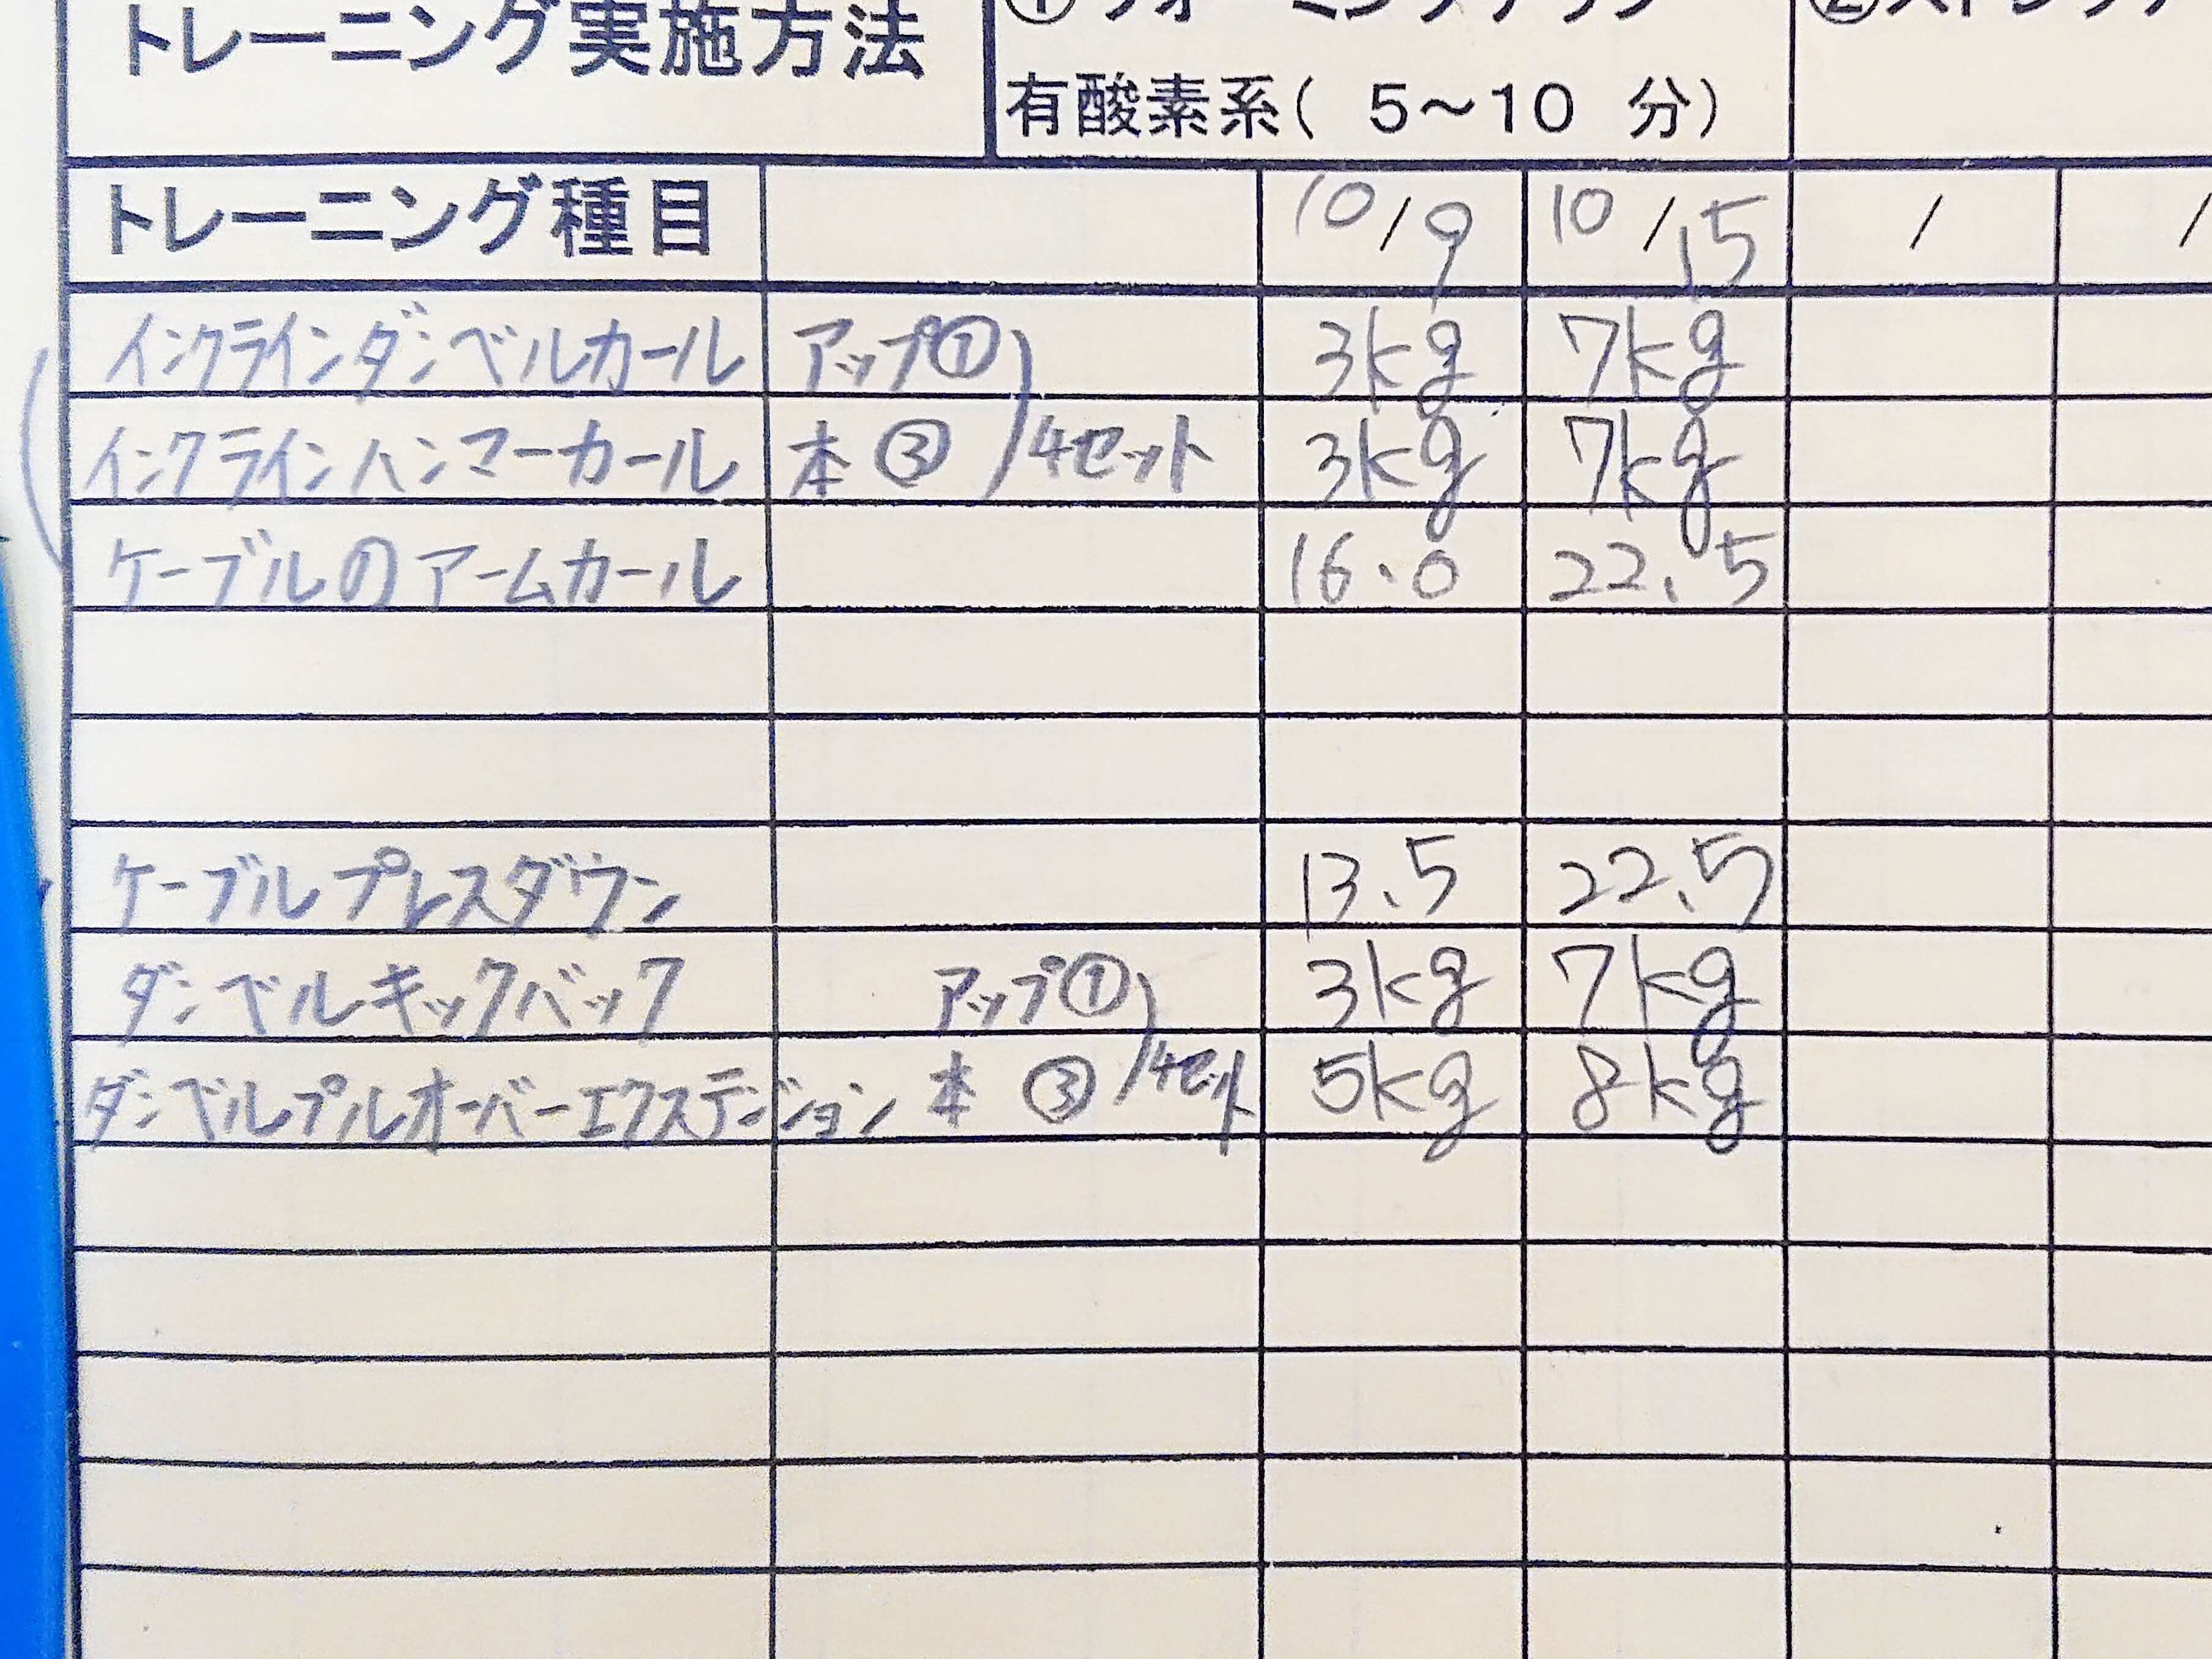 トレーニング実施方法 ①ウォーミングアップ ②ストレッチ
有酸素系( 5～10 分)
トレーニング種目 10/9 10/15 / /
インクラインダンベルカール アップ① 3kg 7kg
インクラインハンマーカール 本③ 4セット 3kg 7kg
ケーブルのアームカール 16.0 22.5
ケーブルプレスダウン 13.5 22.5
ダンベルキックバック アップ① 3kg 7kg
ダンベルプルオーバーエクステンション 本③ 4セット 5kg 8kg